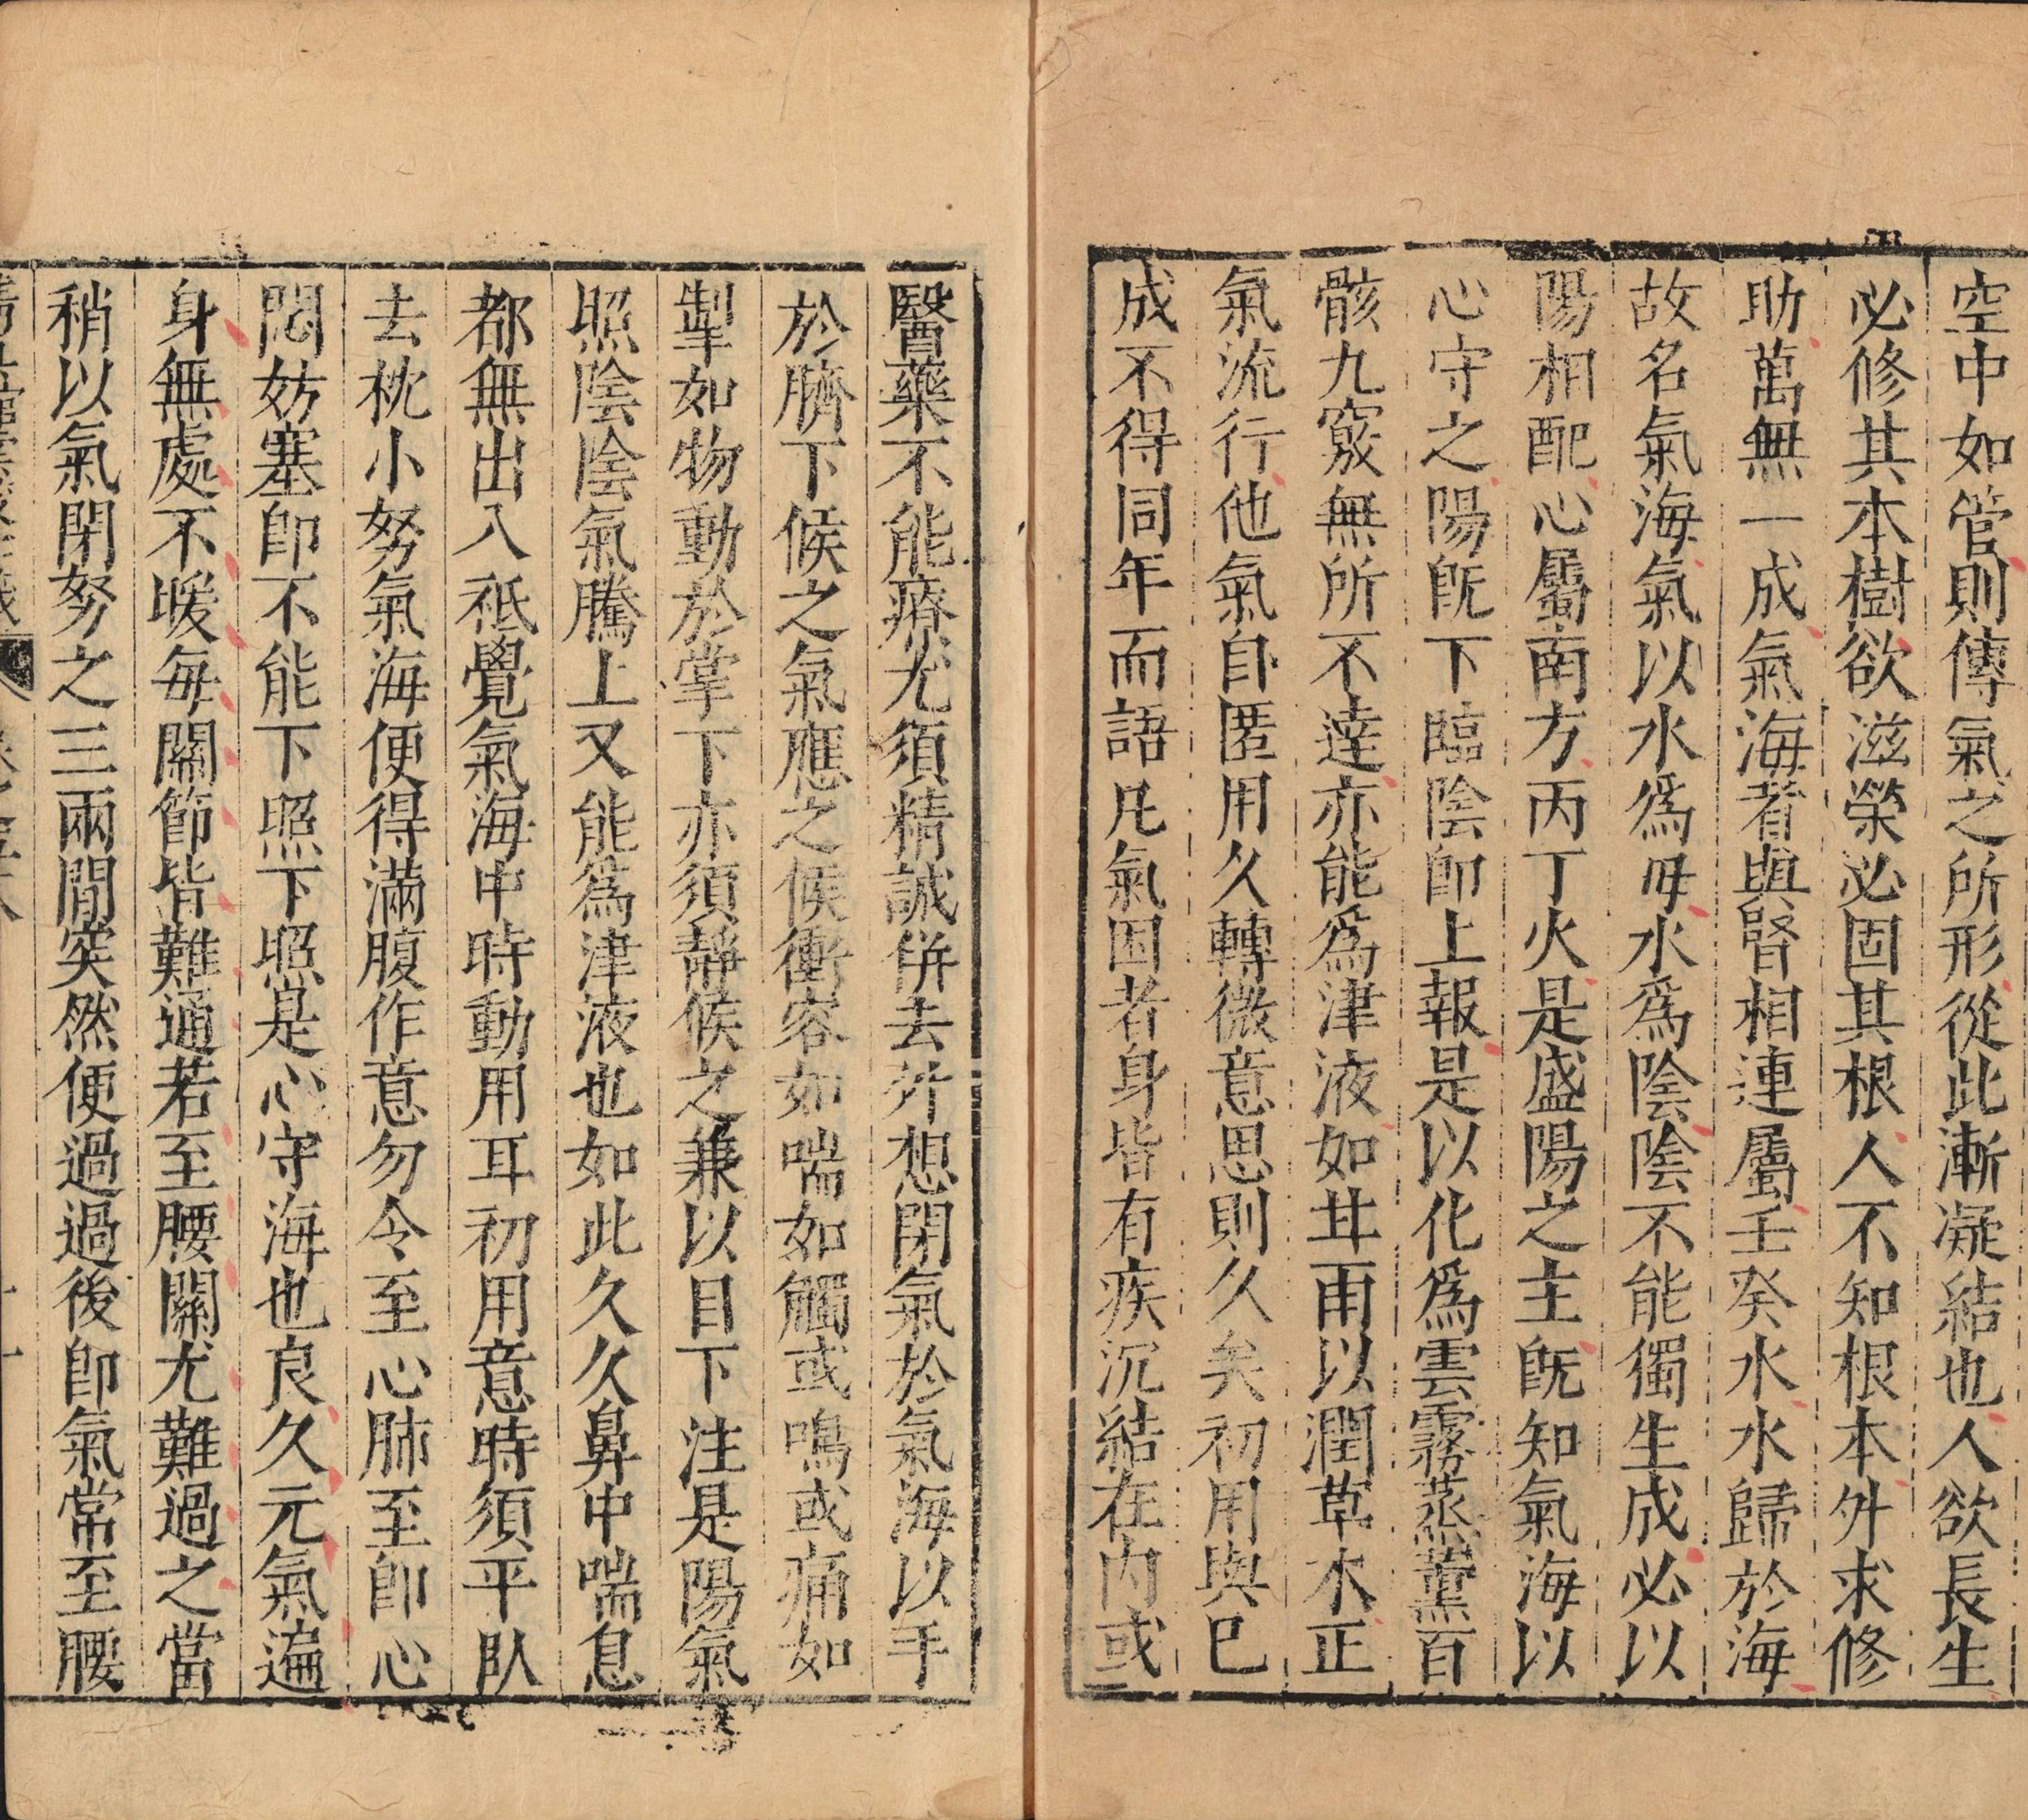 空中如管則傳氣之所形從此漸凝結也人欲長生
必修其本樹欲滋榮必固其根人不知根本外求修
助萬無一成氣海者與腎相連屬壬癸水水歸於海
故名氣海氣以水爲母水爲陰陰不能獨生成必以
陽相配心屬南方丙丁火是盛陽之主旣知氣海以
心守之陽旣下臨陰卽上報是以化爲雲霧蒸薰百
骸九竅無所不達亦能爲津液如甘雨以潤草木正
氣流行他氣自匿用久轉微意思則久矣初用與已
成不得同年而語凡氣困者身皆有疾沉結在内或
醫藥不能療尤須精誠併去外想閉氣於氣海以手
於臍下候之氣應之候衝容如喘如觸或鳴或痛如
掣如物動於掌下亦須靜候之兼以目下注是陽氣
照陰陰氣騰上又能爲津液也如此久久鼻中喘息
都無出入祇覺氣海中時動用耳初用意時須平臥
去枕小努氣海便得滿腹作意勿令至心肺至卽心
悶妨塞卽不能下照下照是心守海也良久元氣遍
身無處不暖每關節皆難通若至腰關尤難過之當
稍以氣閉努之三兩閒突然便過過後卽氣常至腰